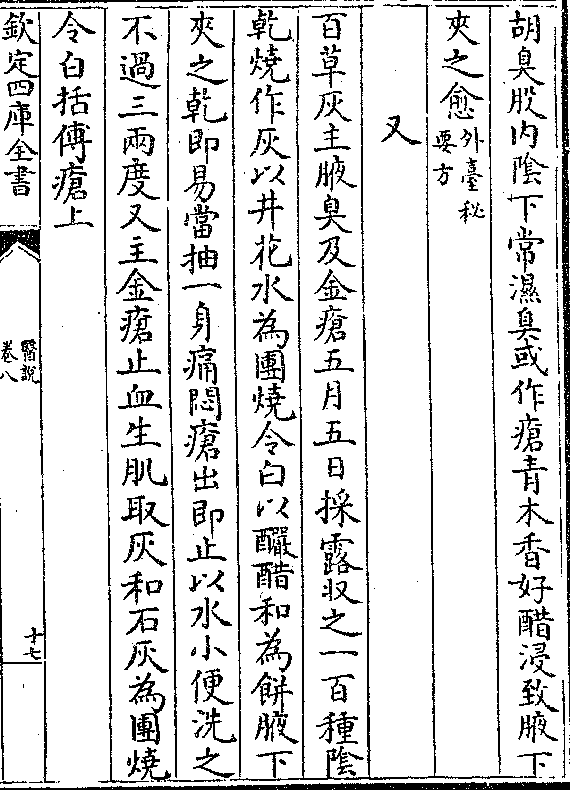 胡臭股内陰下常濕臭或作瘡青木香好醋浸致腋下
夾之愈外臺秘要方
又
百草灰主腋臭及金瘡五月五日採露收之一百種陰
乾燒作灰以井花水為團燒令白以釅醋和為餅腋下
夾之乾即易當抽一身痛悶瘡出即止以水小便洗之
不過三兩度又主金瘡止血生肌取灰和石灰為團燒
令白括傅瘡上
欽定四庫全書
醫說
卷八
十七